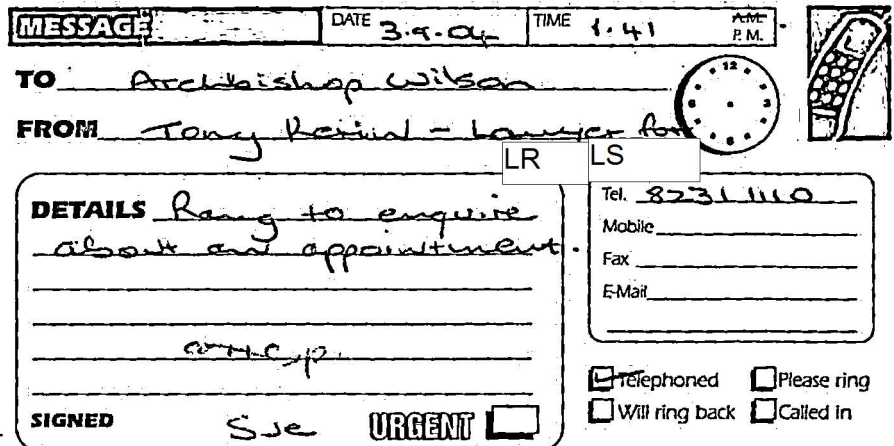 MESSAGE DATE 3.9.04 TIME 1.41 A.M. P.M.
TO Archbishop Wilson
FROM Tony Kerin - Lawyer for
LR LS
DETAILS Rang to enquire
about an appointment.
Tel. 82311110
Mobile
Fax
E-Mail
SIGNED Sue URGENT
Telephoned Please ring
Will ring back Called in